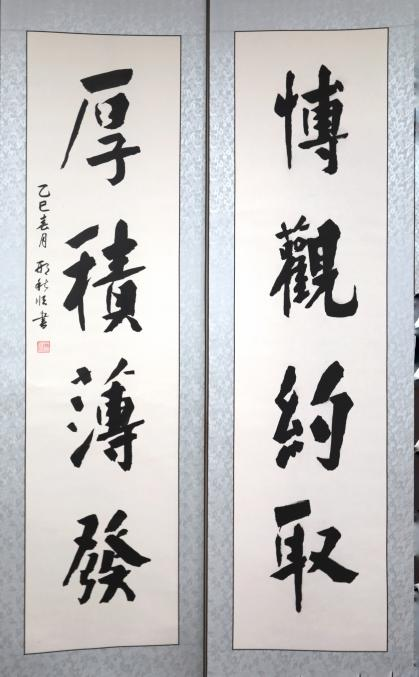 博觀約取
厚積薄發
乙巳春月 邢秋恆書